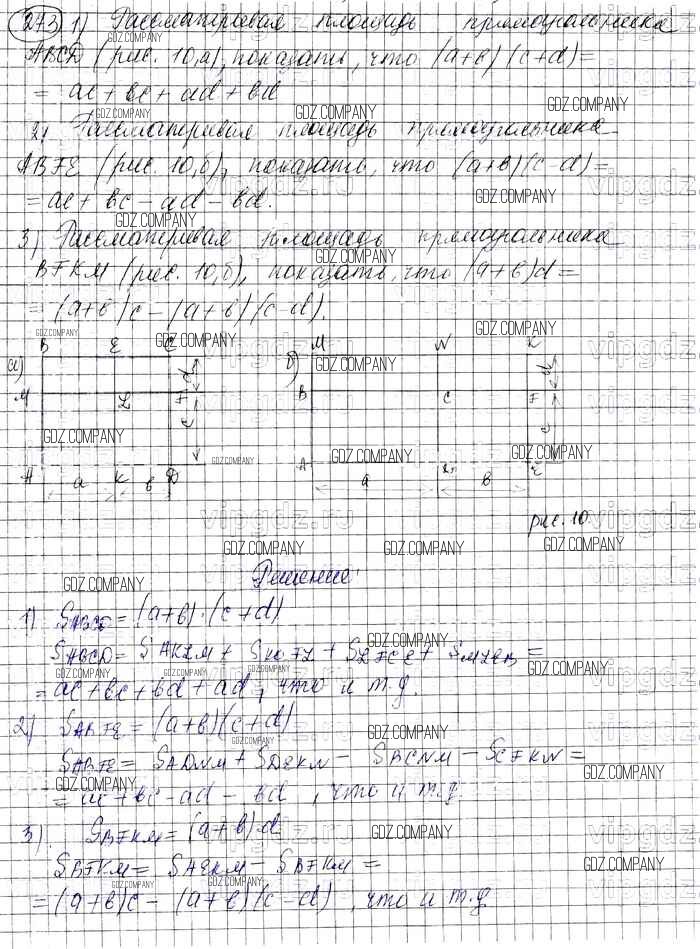 273 1) Рассматривая площадь прямоугольника
ABCD (рис. 10,а), показать, что (a+b)(c+d)=
= ac + bc + ad + bd
2) Рассматривая площадь прямоугольника
ABFE (рис. 10,б), показать, что (a+b)(c-d)=
= ac + bc - ad - bd.
3) Рассматривая площадь прямоугольника
BFKM (рис. 10,б), показать, что (a+b)d=
= (a+b)c - (a+b)(c-d).
а) B E C d
M L F c
A a K b D
б) M N K d
B C F c
A a D b E
рис. 10.
Решение
1) SABCD = (a+b)·(c+d)
SABCD = SAKLM + SKDFL + SLFCE + SMLEB =
= ac + bc + bd + ad, что и т.д.
2) SABFE = (a+b)(c+d)
SABFE = SADNM + SDEKN - SBCNM - SCFKN =
= ac + bc - ad - bd, что и т.д
3). SBFKM = (a+b)·d
SBFKM = SAEKM - SBFKM =
= (a+b)c - (a+b)(c-d), что и т.д
GDZ.COMPANY
vipgdz.ru